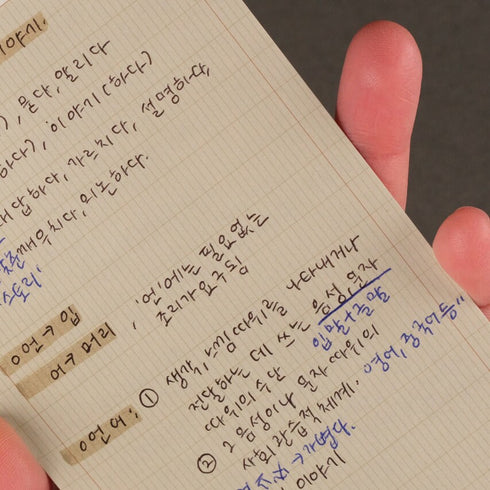 이야기.
), 묻다, 알리다
하다), 이야기(하다)
대답하다, 가르치다, 설명하다,
깨우치다, 의논하다.
스토리'
'언'에는 필요없는
조리가 요구됨
언→입
어→머리
언어:
① 생각, 느낌 따위를 나타내거나
전달하는 데 쓰는 음성 문자
따위의 수단
입말+글말
② 그 음성이나 문자 따위의
사회 관습적 체계. 영어, 중국어 등"
→가볍다.
이야기